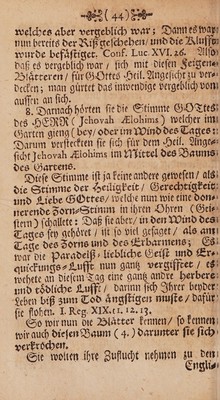 (44)
welches aber vergeblich war; Dann es war
nun bereits der Riß geschehen/ und die Klufft
wurde befästiget. Conf. Luc. XVI. 26. Also
daß es vergeblich war/ sich mit diesen Feigen-
Blätteren/ für GOttes Heil. Angesicht zu ver-
decken; man gürtet das inwendige vergeblich von
aussen an sich.
8. Darnach hörten sie die Stimme GOTtes
des HERRN (Jehovah Ælohims) welcher im
Garten gieng (bey/ oder im Wind des Tages:
Darum versteckten sie sich für dem Heil. Ange-
sicht Jehovah Ælohims im Mittel des Baums
des Gartens.
Diese Stimme ist ja keine andere gewesen/ als
die Stimme der Heiligkeit/ Gerechtigkeit
und Liebe GOttes/ welche nun wie eine don-
nerende Zorn-Stimm in ihren Ohren (Gei-
stern) schallete: Daß sie aber/ in den Wind des
Tages sey gehöret/ ist so viel gesaget/ als am
Tage des Zorns und des Erbarmens; Es
war die Paradeiß/ liebliche Geist und Er-
quickungs-Lufft nun gantz vergifftet/ es
wehete an diesem Tag eine gantz andre herbere
und tödliche Lufft/ darinn sich Ihrer beyder
Leben biß zum Tod ängstigen muste/ dafür
sie flohen. I. Reg. XIX. 11. 12. 13.
So wir nun die Blätter kennen/ so kennen
wir auch diesen Baum (4.) darunter sie sich
verkrochen.
Sie wolten ihre Zuflucht nehmen zu den
Engli-